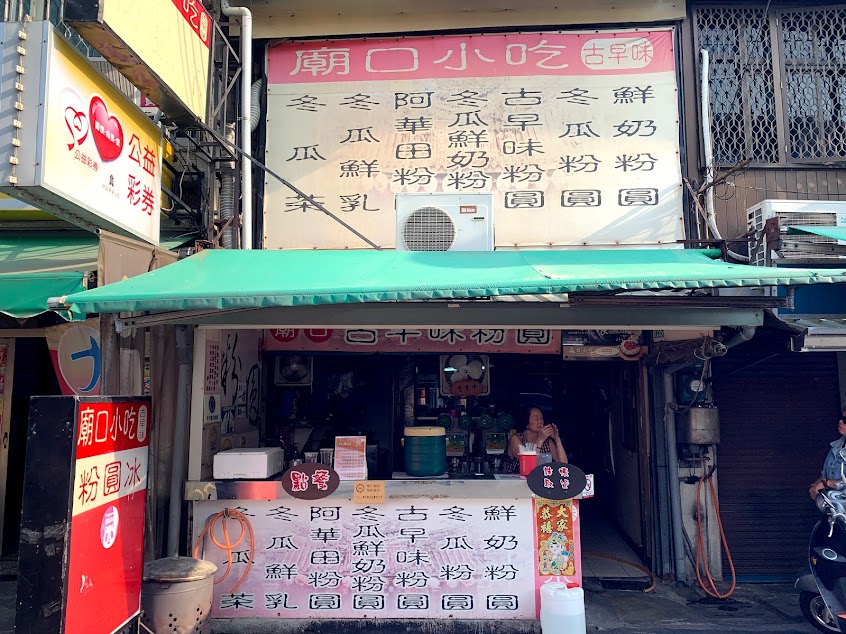 廟口小吃 古早味
鮮奶粉圓
冬瓜粉圓
古早味粉圓
冬瓜鮮奶粉
阿華田粉
冬瓜鮮乳
冬瓜茶
公益彩券
公益彩券
小吃
廟口 古早味粉圓
粉圓
廟口小吃 古早味
粉圓冰
點餐
鮮奶粉圓
冬瓜粉圓
古早味粉圓
冬瓜鮮奶粉圓
阿華田粉圓
冬瓜鮮乳
冬瓜茶
大家
恭禧